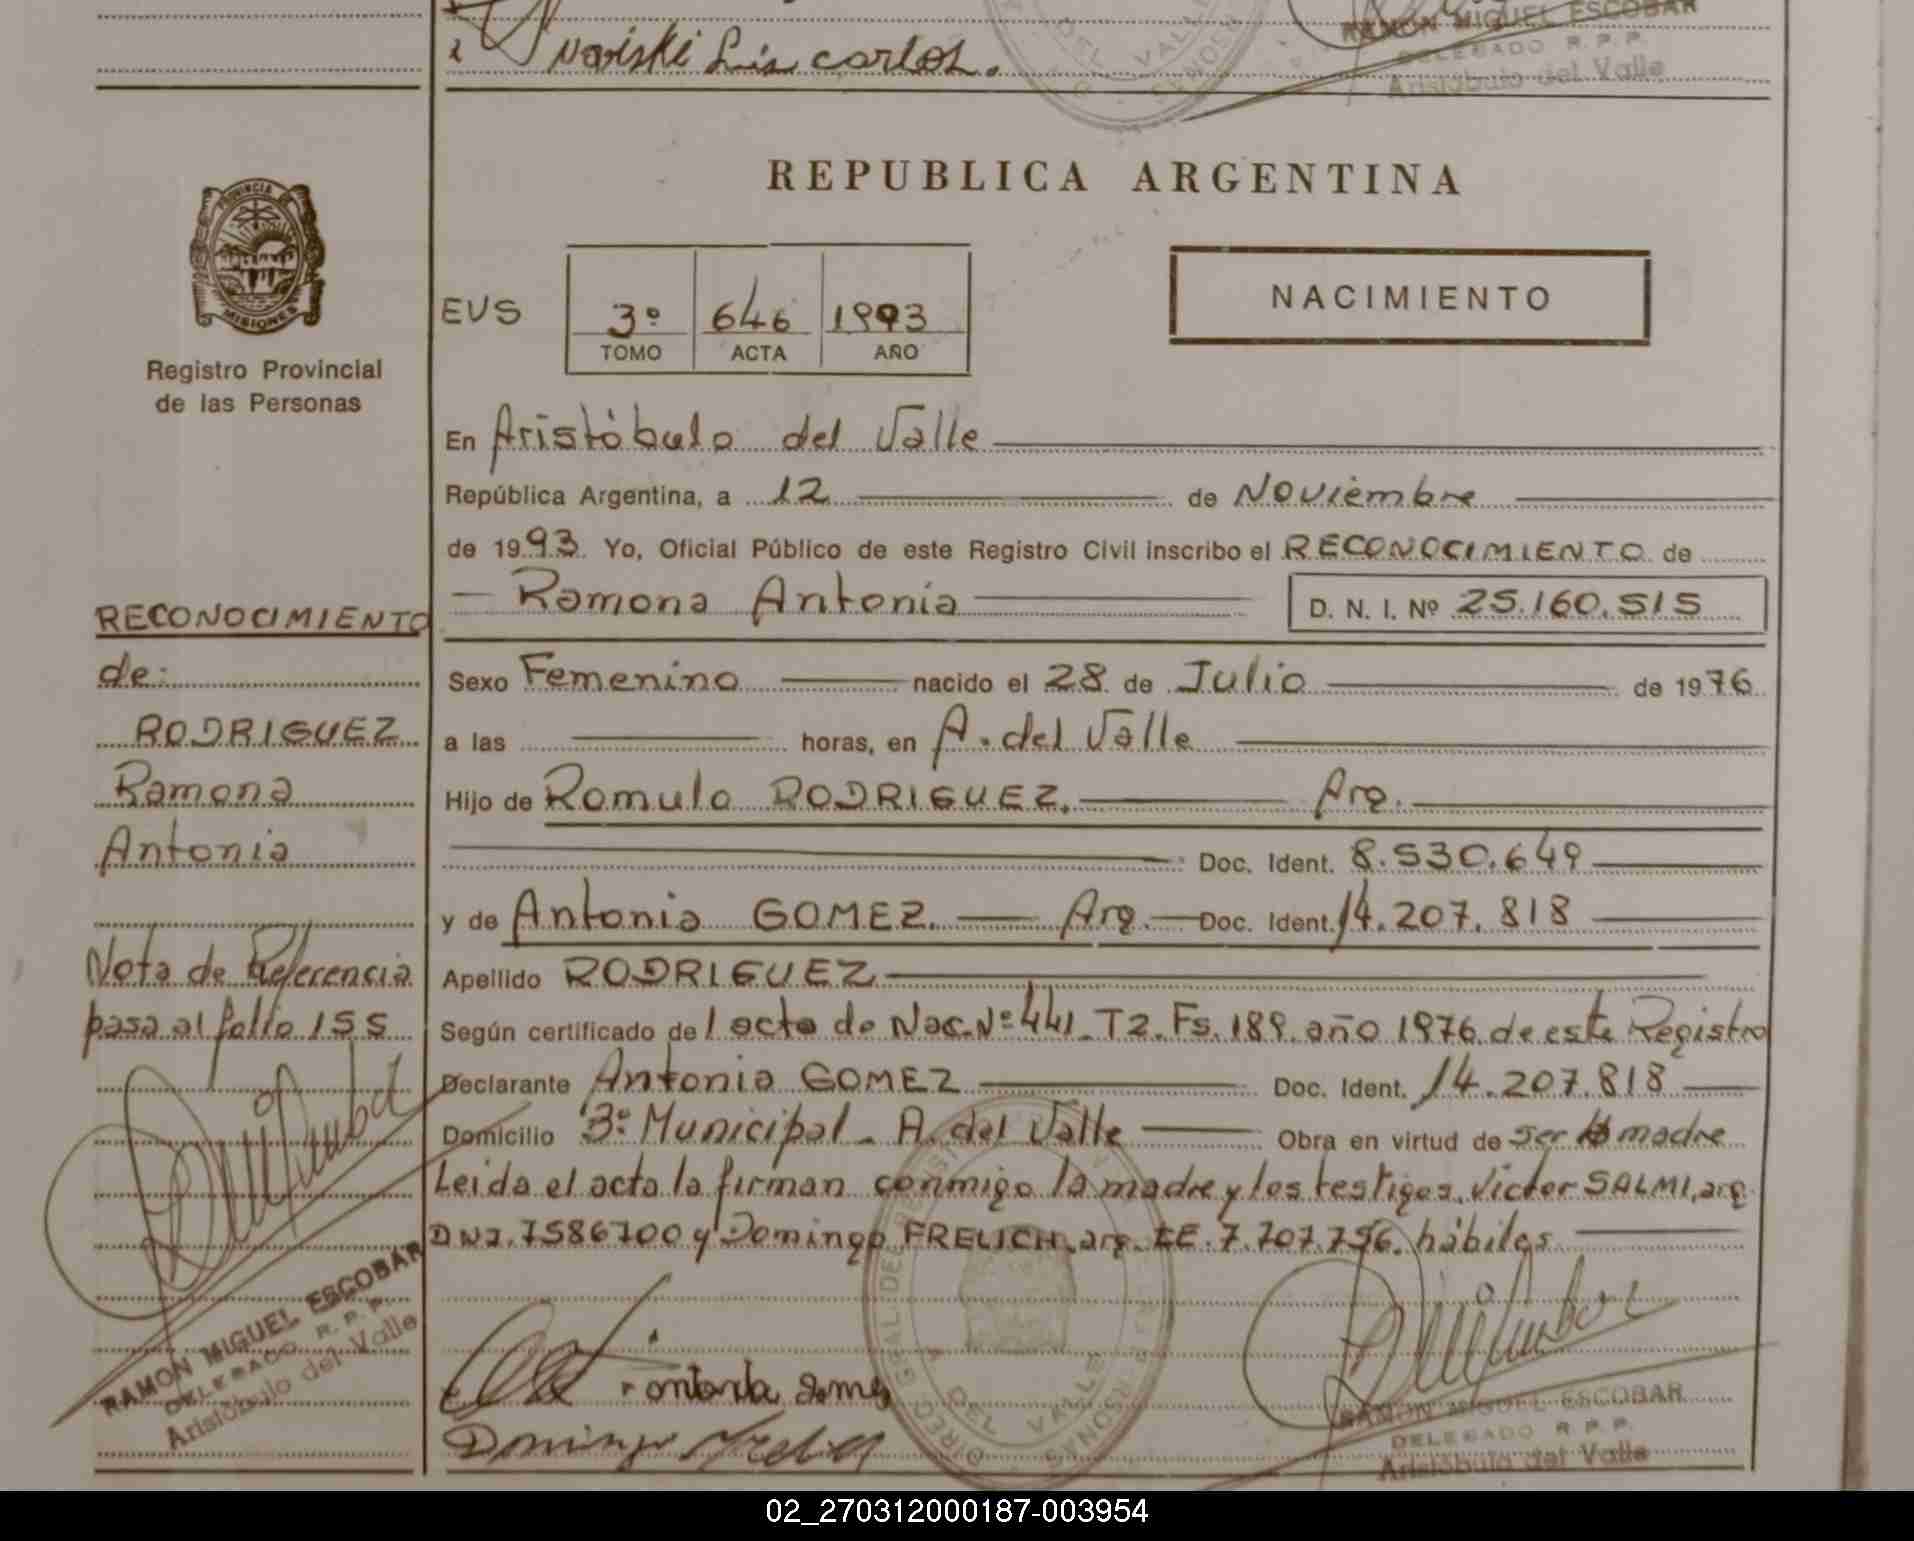 Luis Carlos.
RAMON MIGUEL ESCOBAR
DELEGADO R.P.P.
Aristóbulo del Valle
REPUBLICA ARGENTINA
PROVINCIA
MISIONES
Registro Provincial
de las Personas
EVS
3º 646 1993
TOMO ACTA AÑO
NACIMIENTO
En Aristóbulo del Valle
República Argentina, a 12 de Noviembre
de 1993 Yo, Oficial Público de este Registro Civil inscribo el RECONOCIMIENTO de
Ramona Antonia D. N. I. Nº 25.160.515
Sexo Femenino nacido el 28 de Julio de 1976
a las horas, en A. del Valle
Hijo de Romulo RODRIGUEZ. Arg.
Doc. Ident. 8.530.649
y de Antonia GOMEZ. Arg. Doc. Ident. 14.207.818
Apellido RODRIGUEZ
Según certificado de 1 acta de Nac. Nº 441. T2. Fs. 189. año 1976. de este Registro
Declarante Antonia GOMEZ Doc. Ident. 14.207.818
Domicilio Bº Municipal - A. del Valle Obra en virtud de ser madre
Leida el acta la firman conmigo la madre y los testigos, Victor SALMI, arg.
DNI. 7586700 y Domingo FRELICH, arg. LE. 7.707.756. hábiles
RECONOCIMIENTO
de:
RODRIGUEZ
Ramona
Antonia
Nota de Referencia
pasa al folio 155
RAMON MIGUEL ESCOBAR
DELEGADO R. P. P.
Aristóbulo del Valle
Domingo
DEL VALLE
RAMON MIGUEL ESCOBAR
DELEGADO R. P. P.
Aristóbulo del Valle
02_270312000187-003954